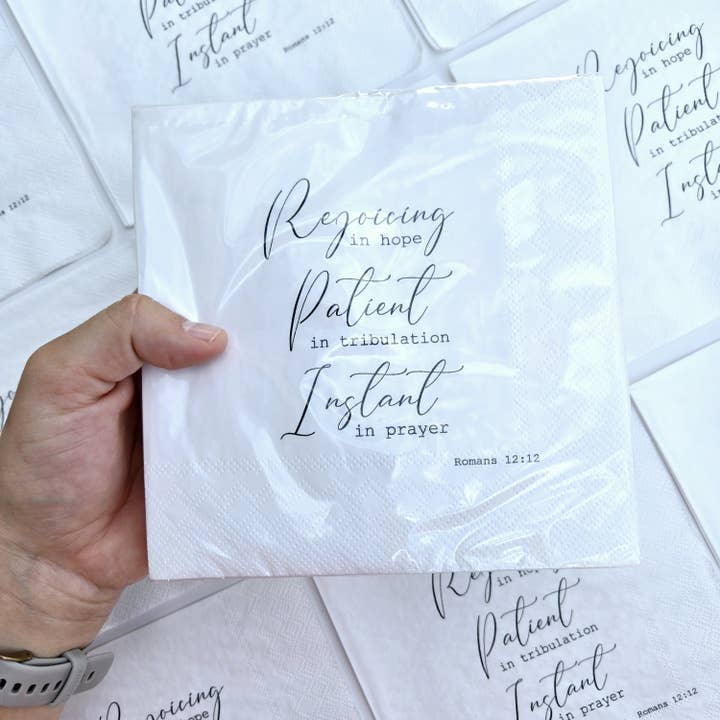 Patient
in tribulation
Instant
in prayer
Romans 12:12
Rejoicing
in hope
Patient
in tribulation
Instant
in
12:12
Rejoicing
in hope
Patient
in tribulation
Instant
in prayer
Romans 12:12
Rejoicing
in hope
Patient
in tribulation
Instant
in prayer
Romans 12:12
Rejoicing
in hope